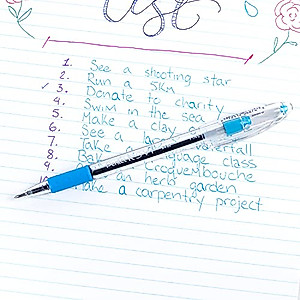 List
1. See a shooting star
2. Run a 5km
✓ 3. Donate to charity
4. Swim in the sea
5. Make a clay
6. See a
7. Take a
8. class
9. Croquembouche
an herb garden
a carpentry project